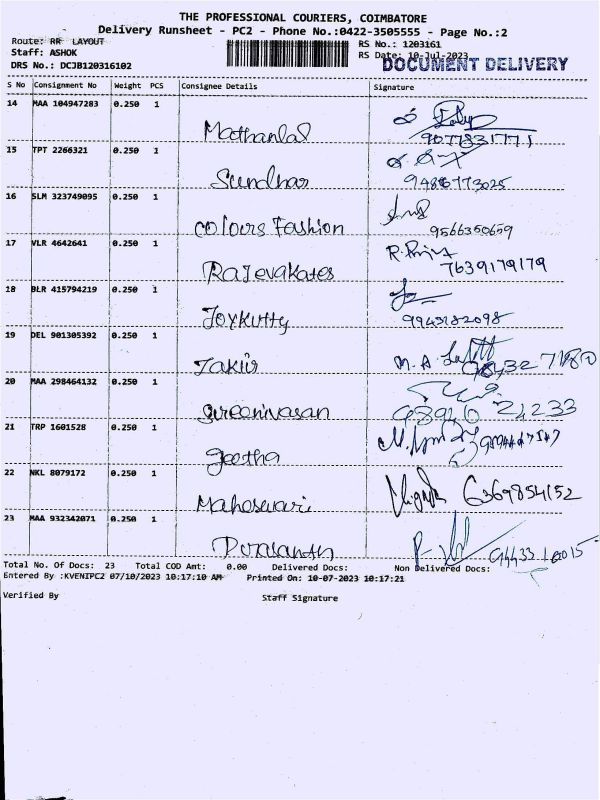 THE PROFESSIONAL COURIERS, COIMBATORE
Delivery Runsheet - PC2 - Phone No.:0422-3505555 - Page No.:2
Route: RR LAYOUT
RS No.: 1203161
Staff: ASHOK
RS Date: 10-Jul-2023
DOCUMENT DELIVERY
DRS No.: DCJB120316102
S No Consignment No Weight PCS Consignee Details Signature
14 MAA 104947283 0.250 1
Mathanlal
9677831771
15 TPT 2266321 0.250 1
Sundhar 9486773025
16 SLM 323749095 0.250 1
colours Fashion 9566350659
17 VLR 4642641 0.250 1 R. Priya
Rajevakates 7639179179
18 BLR 415794219 0.250 1
Joykutty 9943182098
19 DEL 901305392 0.250 1
Jakiir M. A
20 MAA 298464132 0.250 1
Sreenivasan 98940 24233
21 TRP 1601528 0.250 1
Geetha
22 NKL 8079172 0.250 1
Maheswari 6369854152
23 MAA 932342071 0.250 1
Prasanth
Total No. Of Docs: 23 Total COD Amt: 0.00 Delivered Docs: Non Delivered Docs:
Entered By :KVENIPC2 07/10/2023 10:17:10 AM Printed On: 10-07-2023 10:17:21
Verified By Staff Signature